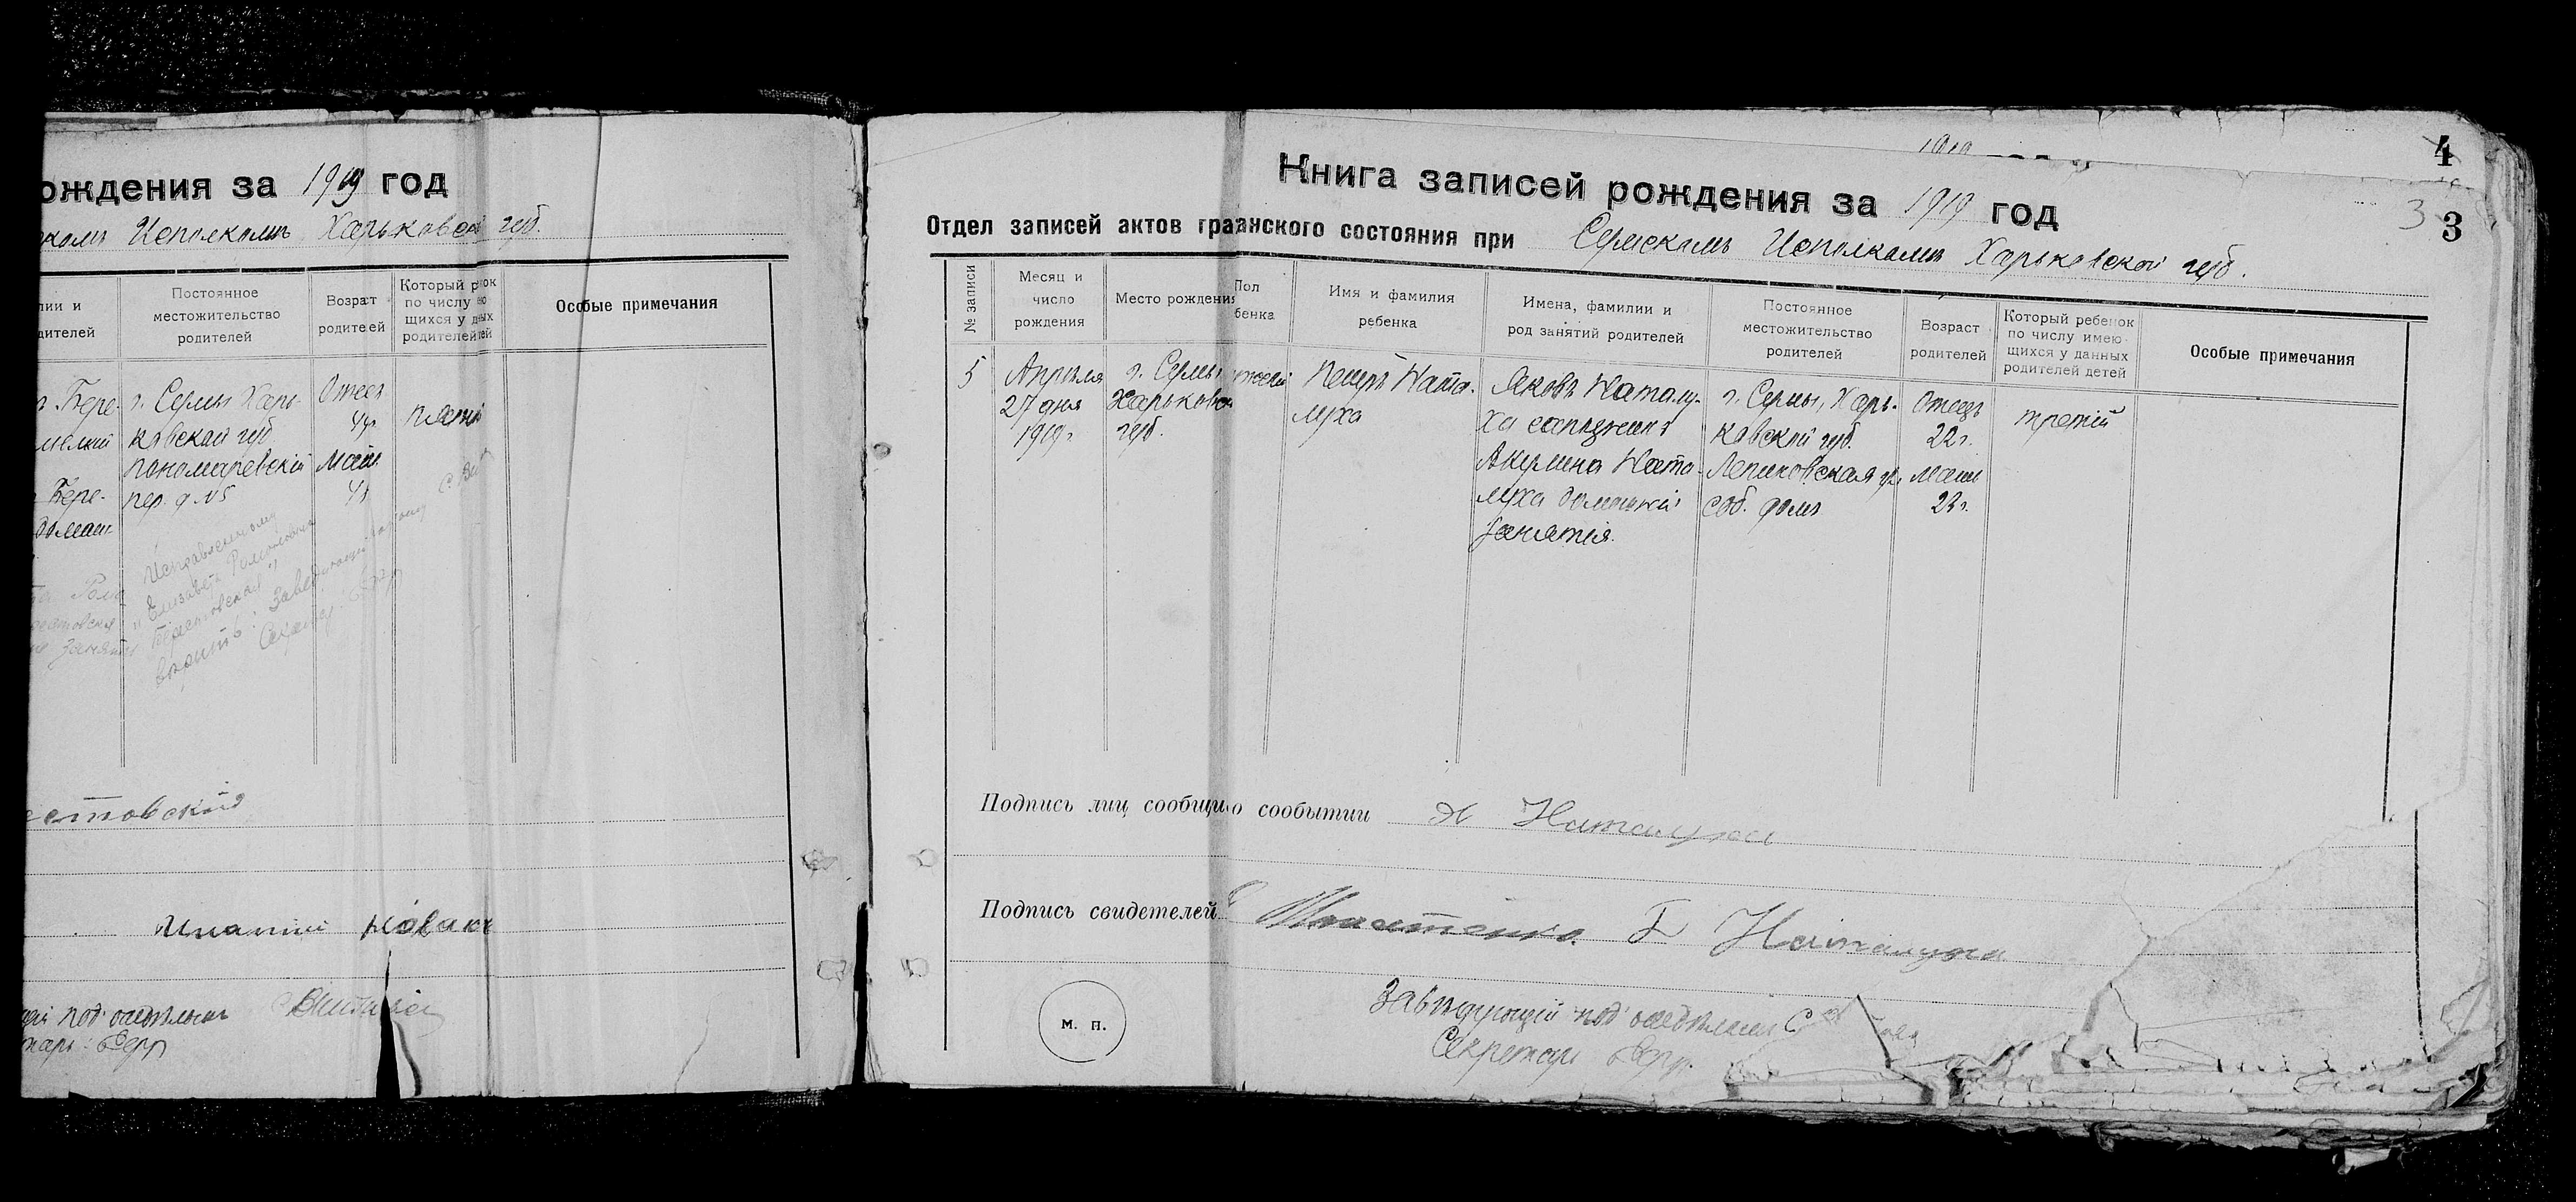 ождения за 1919 год
Исполкомъ Харьковской губ.
лии и
дителей
Постоянное
местожительство
родителей
Возраст
родителей
Который
по числу
щихся у
родителей
Особые примечания
г. Бере-
г. Сумы Харь-
ковской губ.
Пономаревскій
пер. д. №5
Отец
44г.
Мать
пятый
Бере-
домаш-
Исправленному
"Елизавета Романовна
Берестовская"
верить: Заведующий
Секретарь:
естовской
Игнатий Новакъ
под'отделом
4
3
3
Книга записей рождения за 1919 год
Отдел записей актов гра анского состояния при Сумскомъ Исполкомъ Харьковской губ.
№ записи
Месяц и
число
рождения
Место рождения
Пол
бенка
Имя и фамилия
ребенка
Имена, фамилии и
род занятий родителей
Постоянное
местожительство
родителей
Возраст
родителей
Который ребенок
по числу имею-
щихся у данных
родителей детей
Особые примечания
5
Апреля
27 дня
1919 г.
г. Сумы
Харьковс
губ.
Петръ Ната-
луха
Яковъ Наталу-
ха сапожникъ
Акулина Ната-
луха домашнія
занятія.
г. Сумы, Харь-
ковской губ.
соб. домъ
Отецъ
22 г.
мать
23 г.
третій
Подпись лиц сообщи о сообытии Я Наталуха
Подпись свидетелей Игнатенко. Г Наталуха
м. п.
Завѣдующій под'отдѣломъ
Секретарь